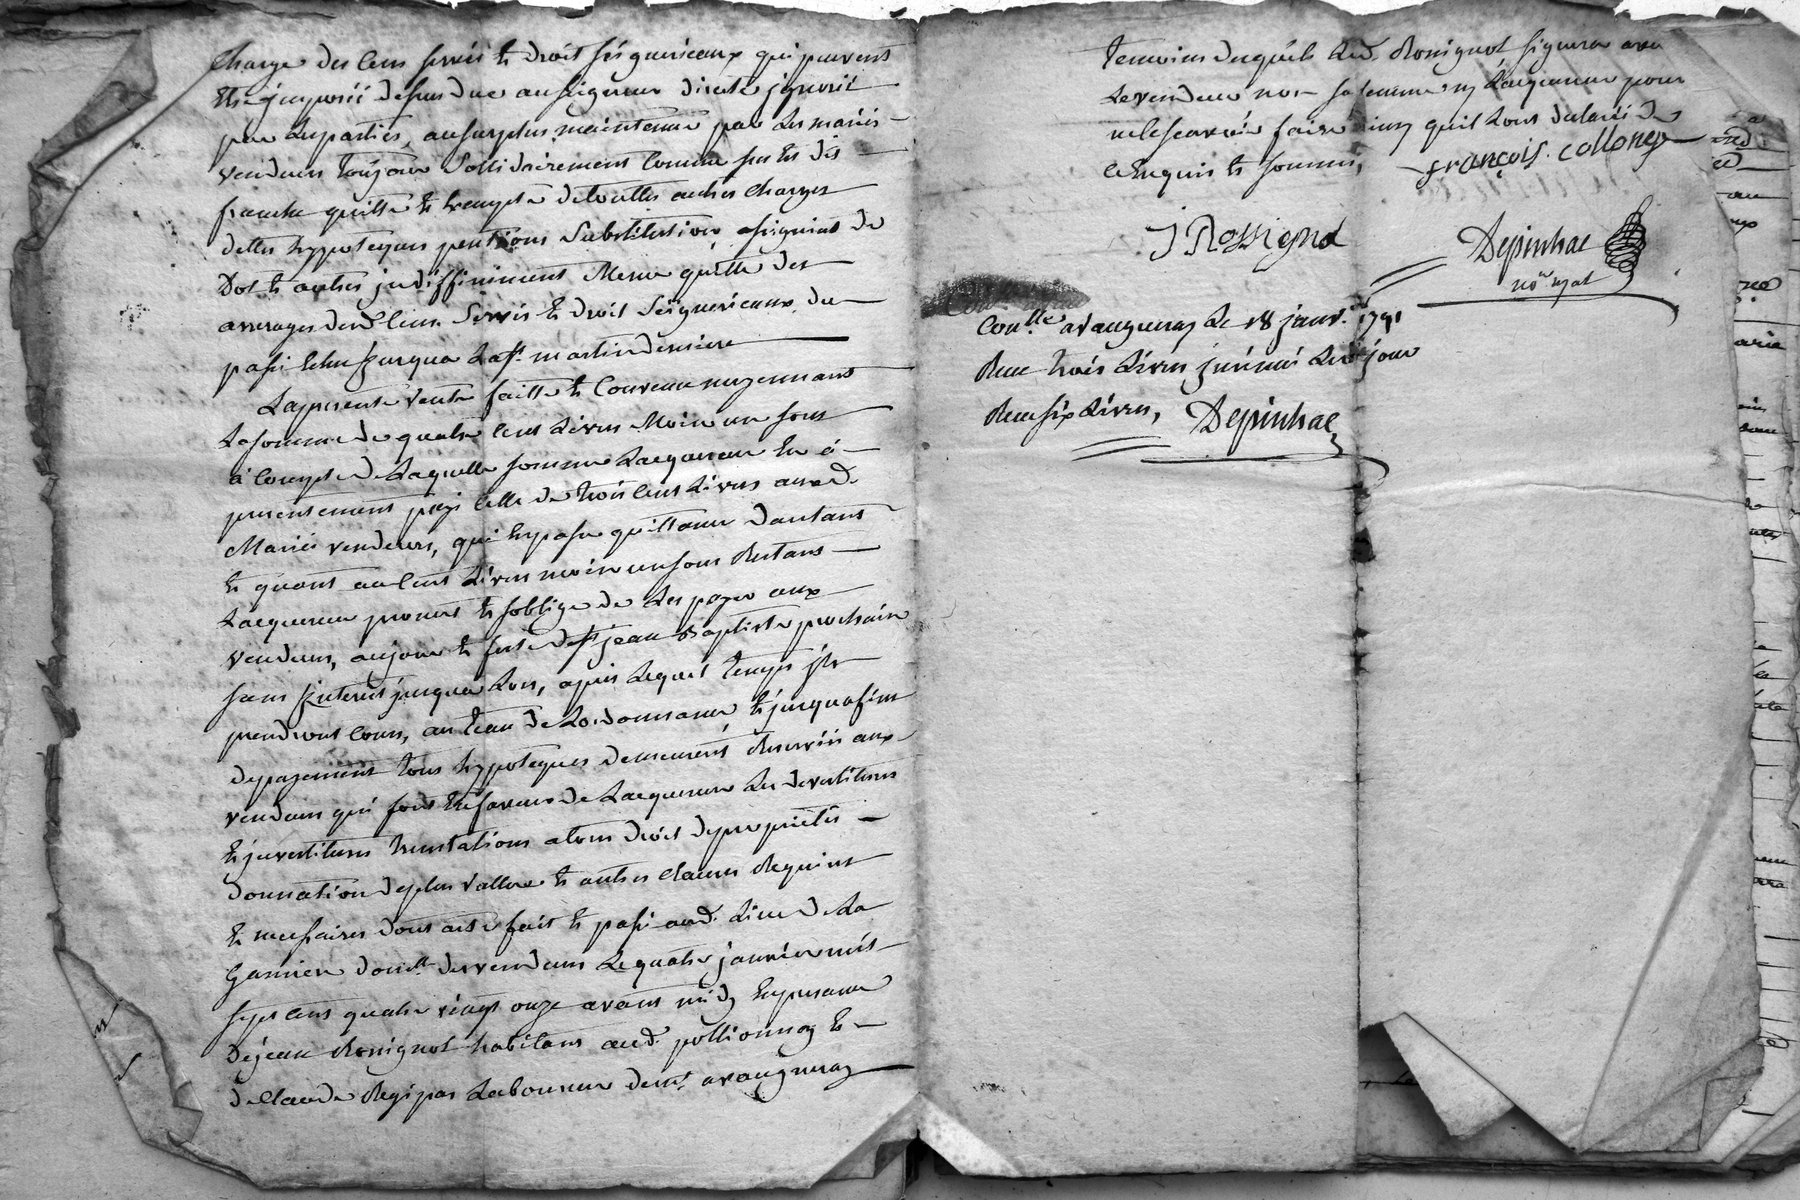 charge des cens servis et droit seigneuriaux qui peuvent
etre imposé dessus due au seigneur direct ignoré
par les parties, au surplus maintenue par les mariés
vendeurs toujour sollidairement comme sur et dis
franche quitte et exempte de touttes autres charges
dettes hypoteques pentions substitutions, assignias de
Dot et autres indiffiniment Meme quitte des
arrerages desd. cens. servis et droit seigneuriaux du
passé echu jusqua la st. martin derniere
La presente vente faitte et convenue moyennant
la somme de quatre cent Livres Moin un sous
à compte de laquelle somme Lacquereur en à
presentement payé celle de trois cent Livres auxd.
Mariés vendeurs, qui en passe quittance d'autant
et quant au cent Livres moin un sous Restant
Lacquereur promet et soblige de les payer aux
vendeurs, au jour et feste de st jean Baptiste prochaine
sans interest jusqua Lors, apres lequel temps ils
prendront cours, au teau de Lordonnance, et jusqua fint
de payement tous hypoteques demeurent Reservés aux
vendeurs qui font en faveur de Lacquereur les devestitures
et jnvestitures trentations a tous droit de proprietés
donnation de plus vallue et autres clauses Requises
et necessaires dont acte fait et passé aud. Lieu de La
Garnier domlle. des vendeurs Le quatre janvier mil
sept cent quatre vingt onze avant midy En presence
de jean Rossignol habitant aud. pollionnay et
de Claude Regipas Laboureur demt. a vaugneray
temoins desquels Led. Rossignol signera avec
Le vendeur non sa femme ny Lacquereur pour
ne le scavoir faire ainsy quil Lont déclaré de
ce Enquis et sommés,
françois. collonge
J Rossignol
Depinhac
nore. royal
Conlle. a vaugneray Le 18 janv. 1791
Reçu trois Livres
Reçu six Livres, Depinhac